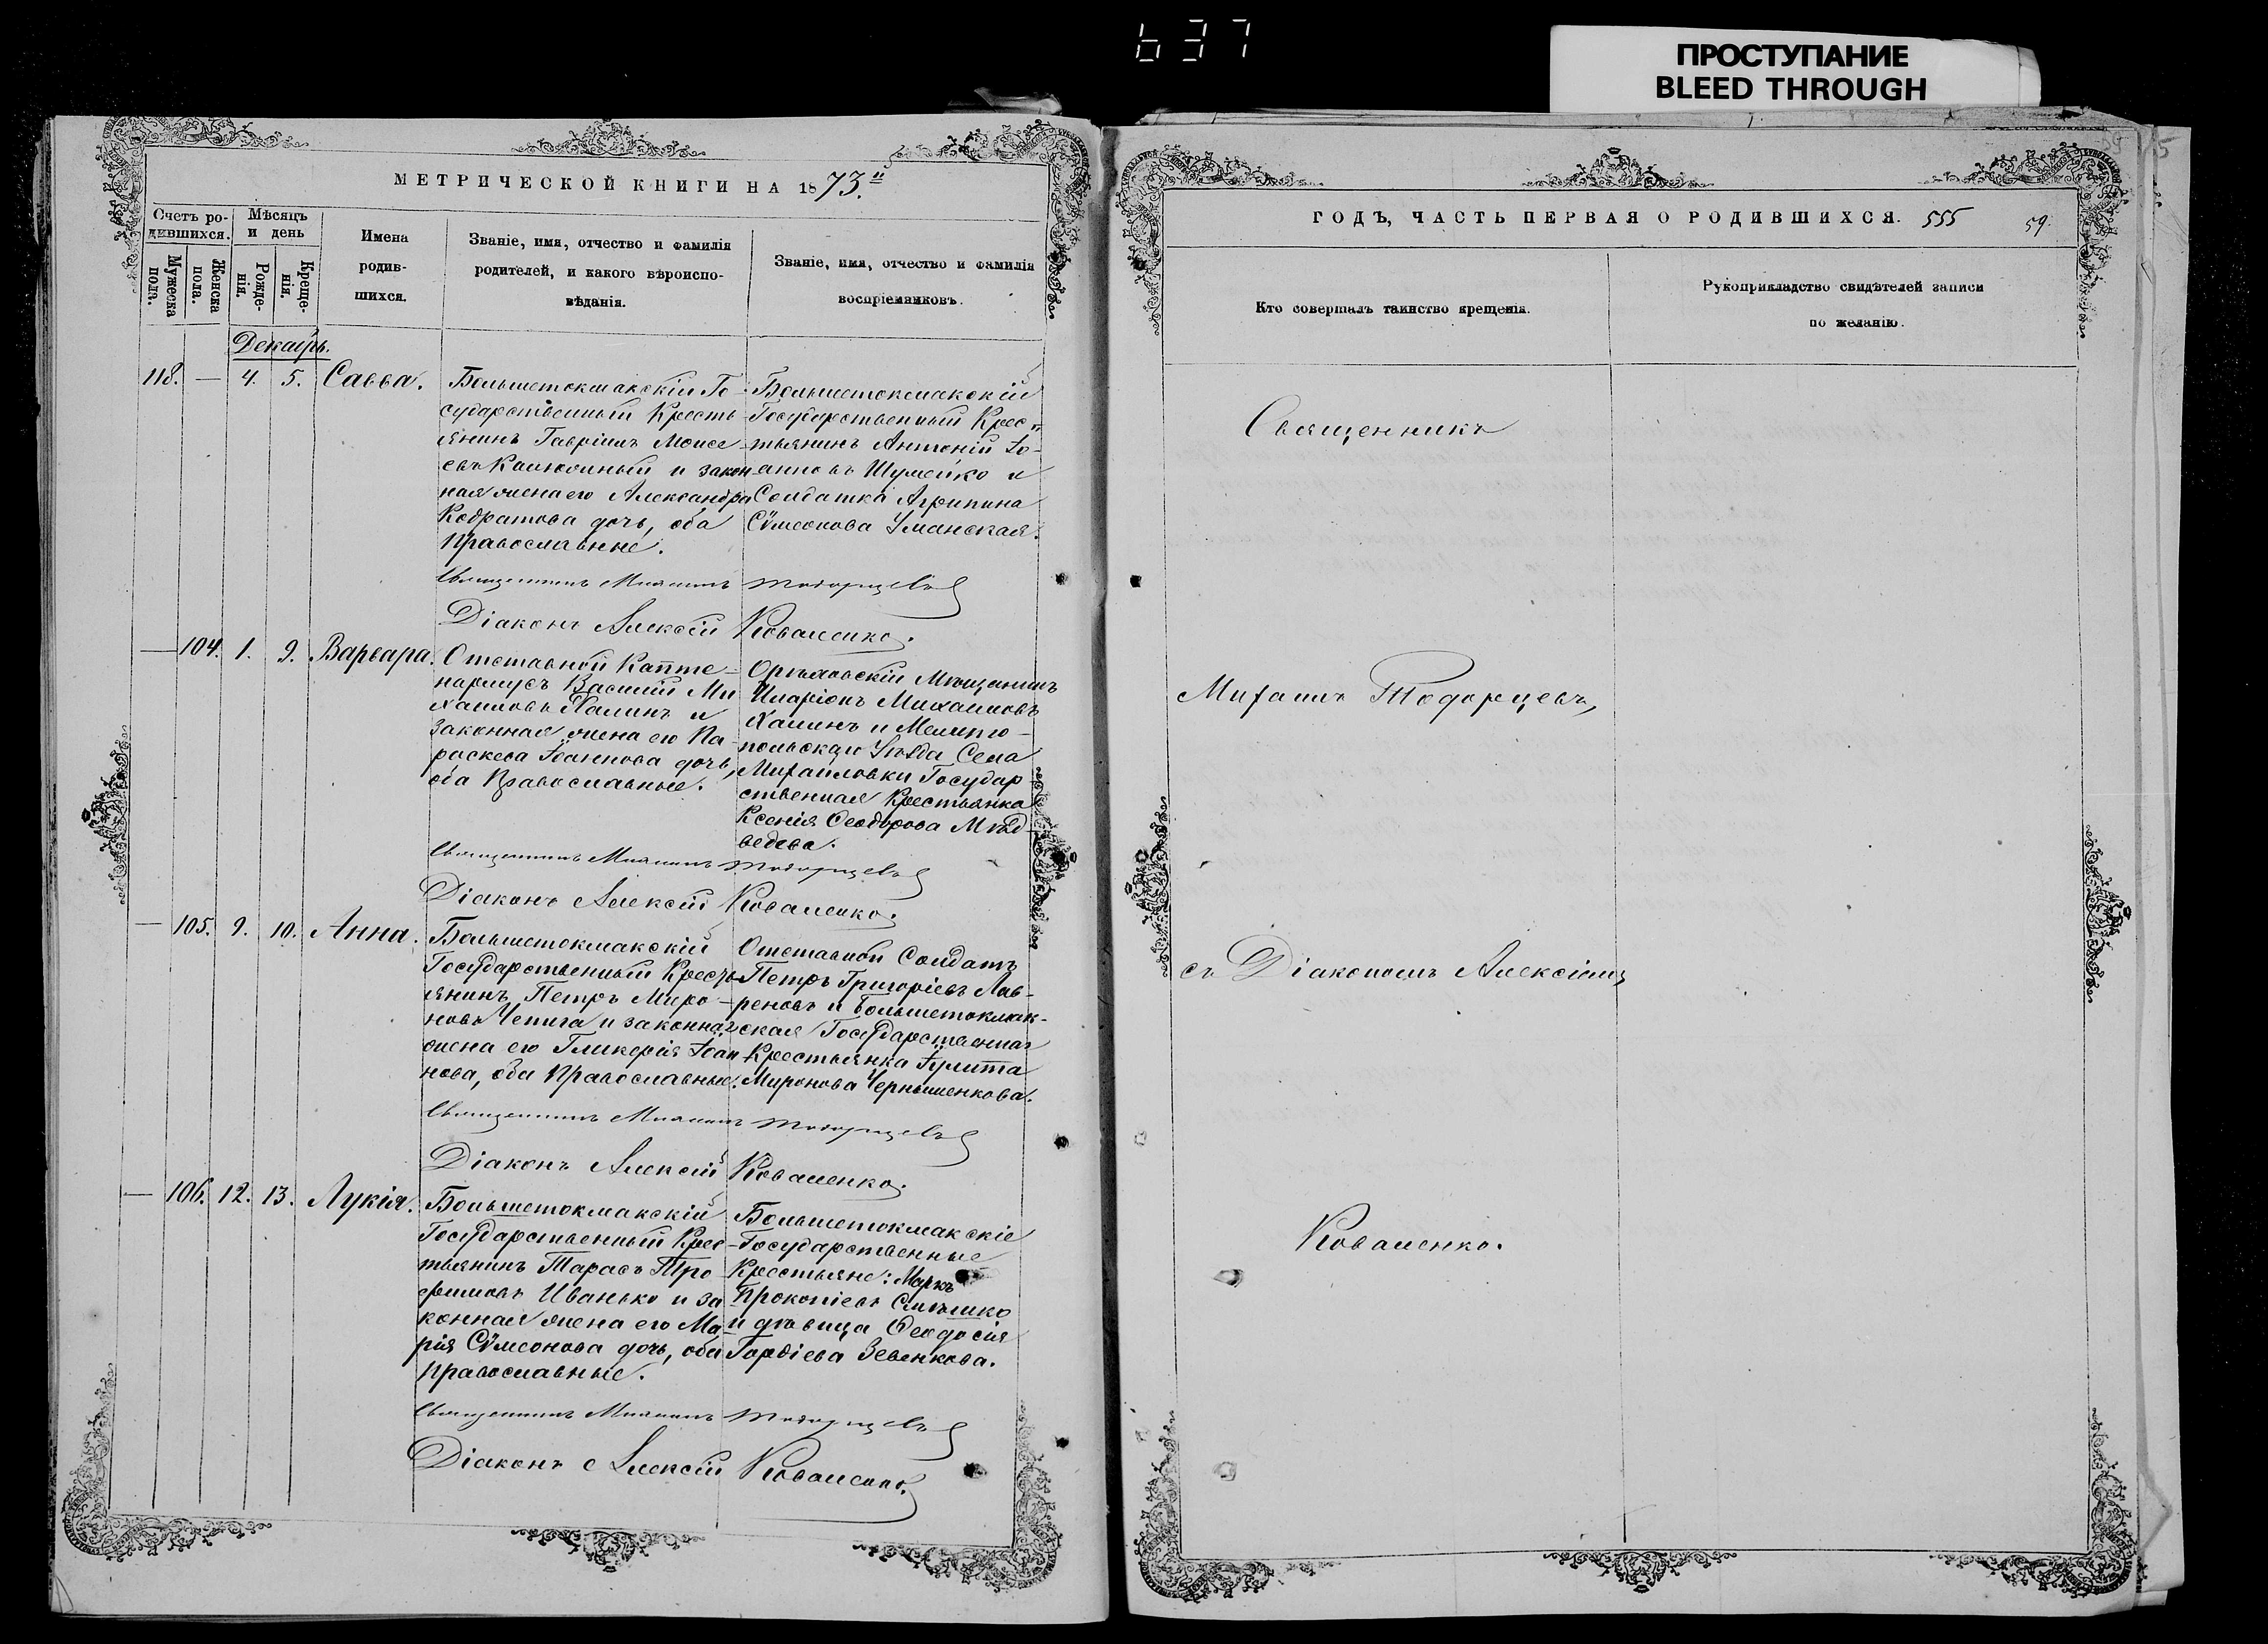 637
ПРОСТУПАНИЕ
BLEED THROUGH
МЕТРИЧЕСКОЙ КНИГИ НА 1873.й
Счетъ ро-
дившихся.
Мѣсяцъ
и день
Мужеска
пола.
Женска
пола.
Рожде-
нія.
Креще-
нія.
Имена
родив-
шихся.
Званіе, имя, отчество и фамилія
родителей, и какого вѣроиспо-
вѣданія.
Званіе, имя, отчество и фамилія
воспріемниковъ.
Декабрь.
118. — 4. 5. Савва.
Большетокмакскій Го-
сударственный Кресть
янинъ Гавріилъ Моисе-
евъ и закон
ная жена его Александра
Кодратова дочь, оба
Православные.
Большетокмакскій
Государственный Крес-
тьянинъ Антоній Іо-
анновъ Шумейко и
Солдатка Агрипина
Сѵмеонова Уманская.
Священникъ Михаилъ Тодорцевъ
Діаконъ Алексій Коваленко.
— 104. 1. 9. Варвара.
Отставной Капте-
нармусъ Василій Ми
хаиловъ Халинъ и
Законная жена его Па-
раскева Іоаннова дочь,
оба Православные.
Орѣховскій Мѣщанинъ
Иларіонъ Михаиловъ
Халинъ и Мелито-
польскаго Уѣзда Села
Михаиловки Государ
ственная Крестьянка
Ксенія Ѳеодорова Мѣд-
ведева.
Священникъ Михаилъ Тодорцевъ
Діаконъ Алексій Коваленко.
— 105. 9. 10. Анна.
Большетокмакскій
Государственный Кресть-
янинъ Петръ Миро-
новъ Чепига и законная
жена его Гликерія Іоан
нова, оба Православные.
Отставной Солдатъ
Петръ Григоріевъ Лав-
реновъ и Большетокмак-
ская Государственная
Крестьянка Іулитта
Миронова Чернышенкова.
Священникъ Михаилъ Тодорцевъ
Діаконъ Алексій Коваленко.
— 106. 12. 13. Лукія.
Большетокмакскій
Государственный Крес-
тьянинъ Тарасъ Тро-
фимовъ Иванько и за
конная жена его Ма-
рія Сѵмеонова дочь, оба
православные.
Большетокмакскіе
Государственные
Крестьяне: Маркъ
Прокопіевъ
и дѣвица Ѳеодосія
Гордіева Зевенкова.
Священникъ Михаилъ Тодорцевъ
Діаконъ Алексій Коваленко.
ГОДЪ, ЧАСТЬ ПЕРВАЯ О РОДИВШИХСЯ. 555 59.
Кто совершалъ таинство крещенія.
Рукоприкладство свидѣтелей записи
по желанію.
Священникъ
Михаилъ Тодорцевъ,
съ Діакономъ Алексіемъ
Коваленко.